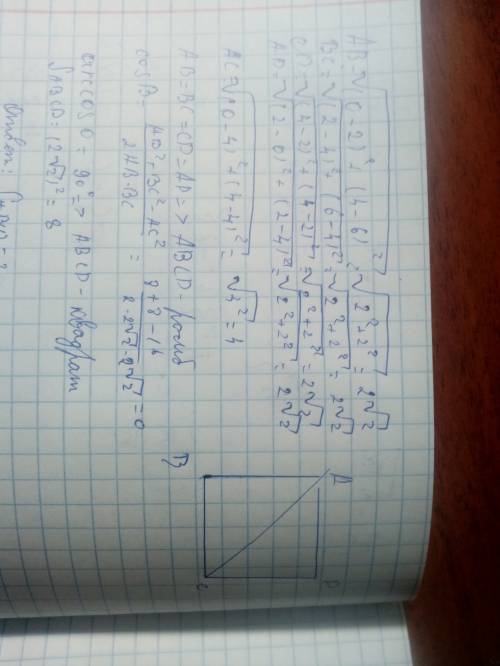 AB = √(0-2)² + (4-6)² = √2²+2² = 2√2
BC = √(2-4)² + (6-4)² = √2²+2² = 2√2
CD = √(4-2)² + (4-2)² = √2²+2² = 2√2
AD = √(2-0)² + (2-4)² = √2²+2² = 2√2
AC = √(0-4)² + (4-4)² = √4² = 4
AB = BC = CD = AD => ABCD - ромб
cos B = AB² + BC² - AC² / 2AB·BC = 8+8-16 / 2·2√2·2√2 = 0
arccos 0 = 90° => ABCD - квадрат
SABCD = (2√2)² = 8
Ответ:
A
D
B
C